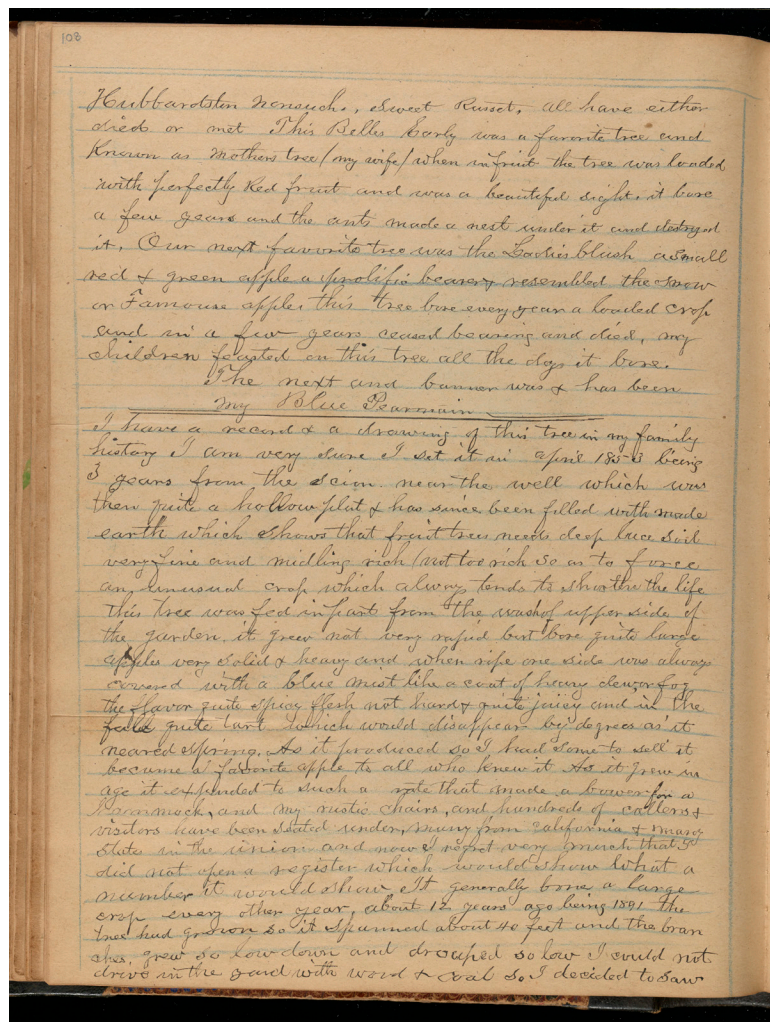 108
Hubbardston nonsuch, Sweet Russet, all have either
died or met This Belles Early was a favorite tree and
Known as Mothers tree / my wife / when in fruit the tree was loaded
with perfectly Red fruit and was a beautiful sight, it bore
a few years and the ants made a nest under it and destroyed
it, Our next favorite tree was the Ladies blush a small
red & green apple a prolific bearer & resembled the snow
or Famouse apples this tree bore every year a loaded crop
and in a few years ceased bearing and died, my
children feasted on this tree all the days it bore.
The next and banner was & has been
My Blue Pearmain
I have a record & a drawing of this tree in my family
history I am very sure I set it in april 1853 being
3 years from the scion near the well which was
then quite a hollow plat & has since been filled with made
earth which shows that fruit trees needs deep soil
very fine and midling rich / not too rich so as to force
an unusual crop which always tends to shorten the life
This tree was fed in part from the wash of upper side of
the garden, it grew not very rapid but bore quite large
apples very solid & heavy and when ripe one side was always
covered with a blue mist like a coat of heavy dew or fog
the flavor quite spicy flesh not hard & quite juicy and in the
fall quite tart which would disappear by degrees as it
neared spring. As it produced so I had some to sell it
became a favorite apple to all who knew it As it grew in
age it expended to such a rate that made a bower for a
hammock, and my rustic chairs, and hundreds of callers &
visitors have been seated under, many from California & many
state in the union and now I regret very much that I
did not open a register which would show what a
number it would show, It generally bore a large
crop every other year, about 12 years ago being 1891 the
tree had grown so it spanned about 40 feet and the bran
ches, grew so low down and drouped so low I could not
drive in the yard with wood & coal so I decided to saw